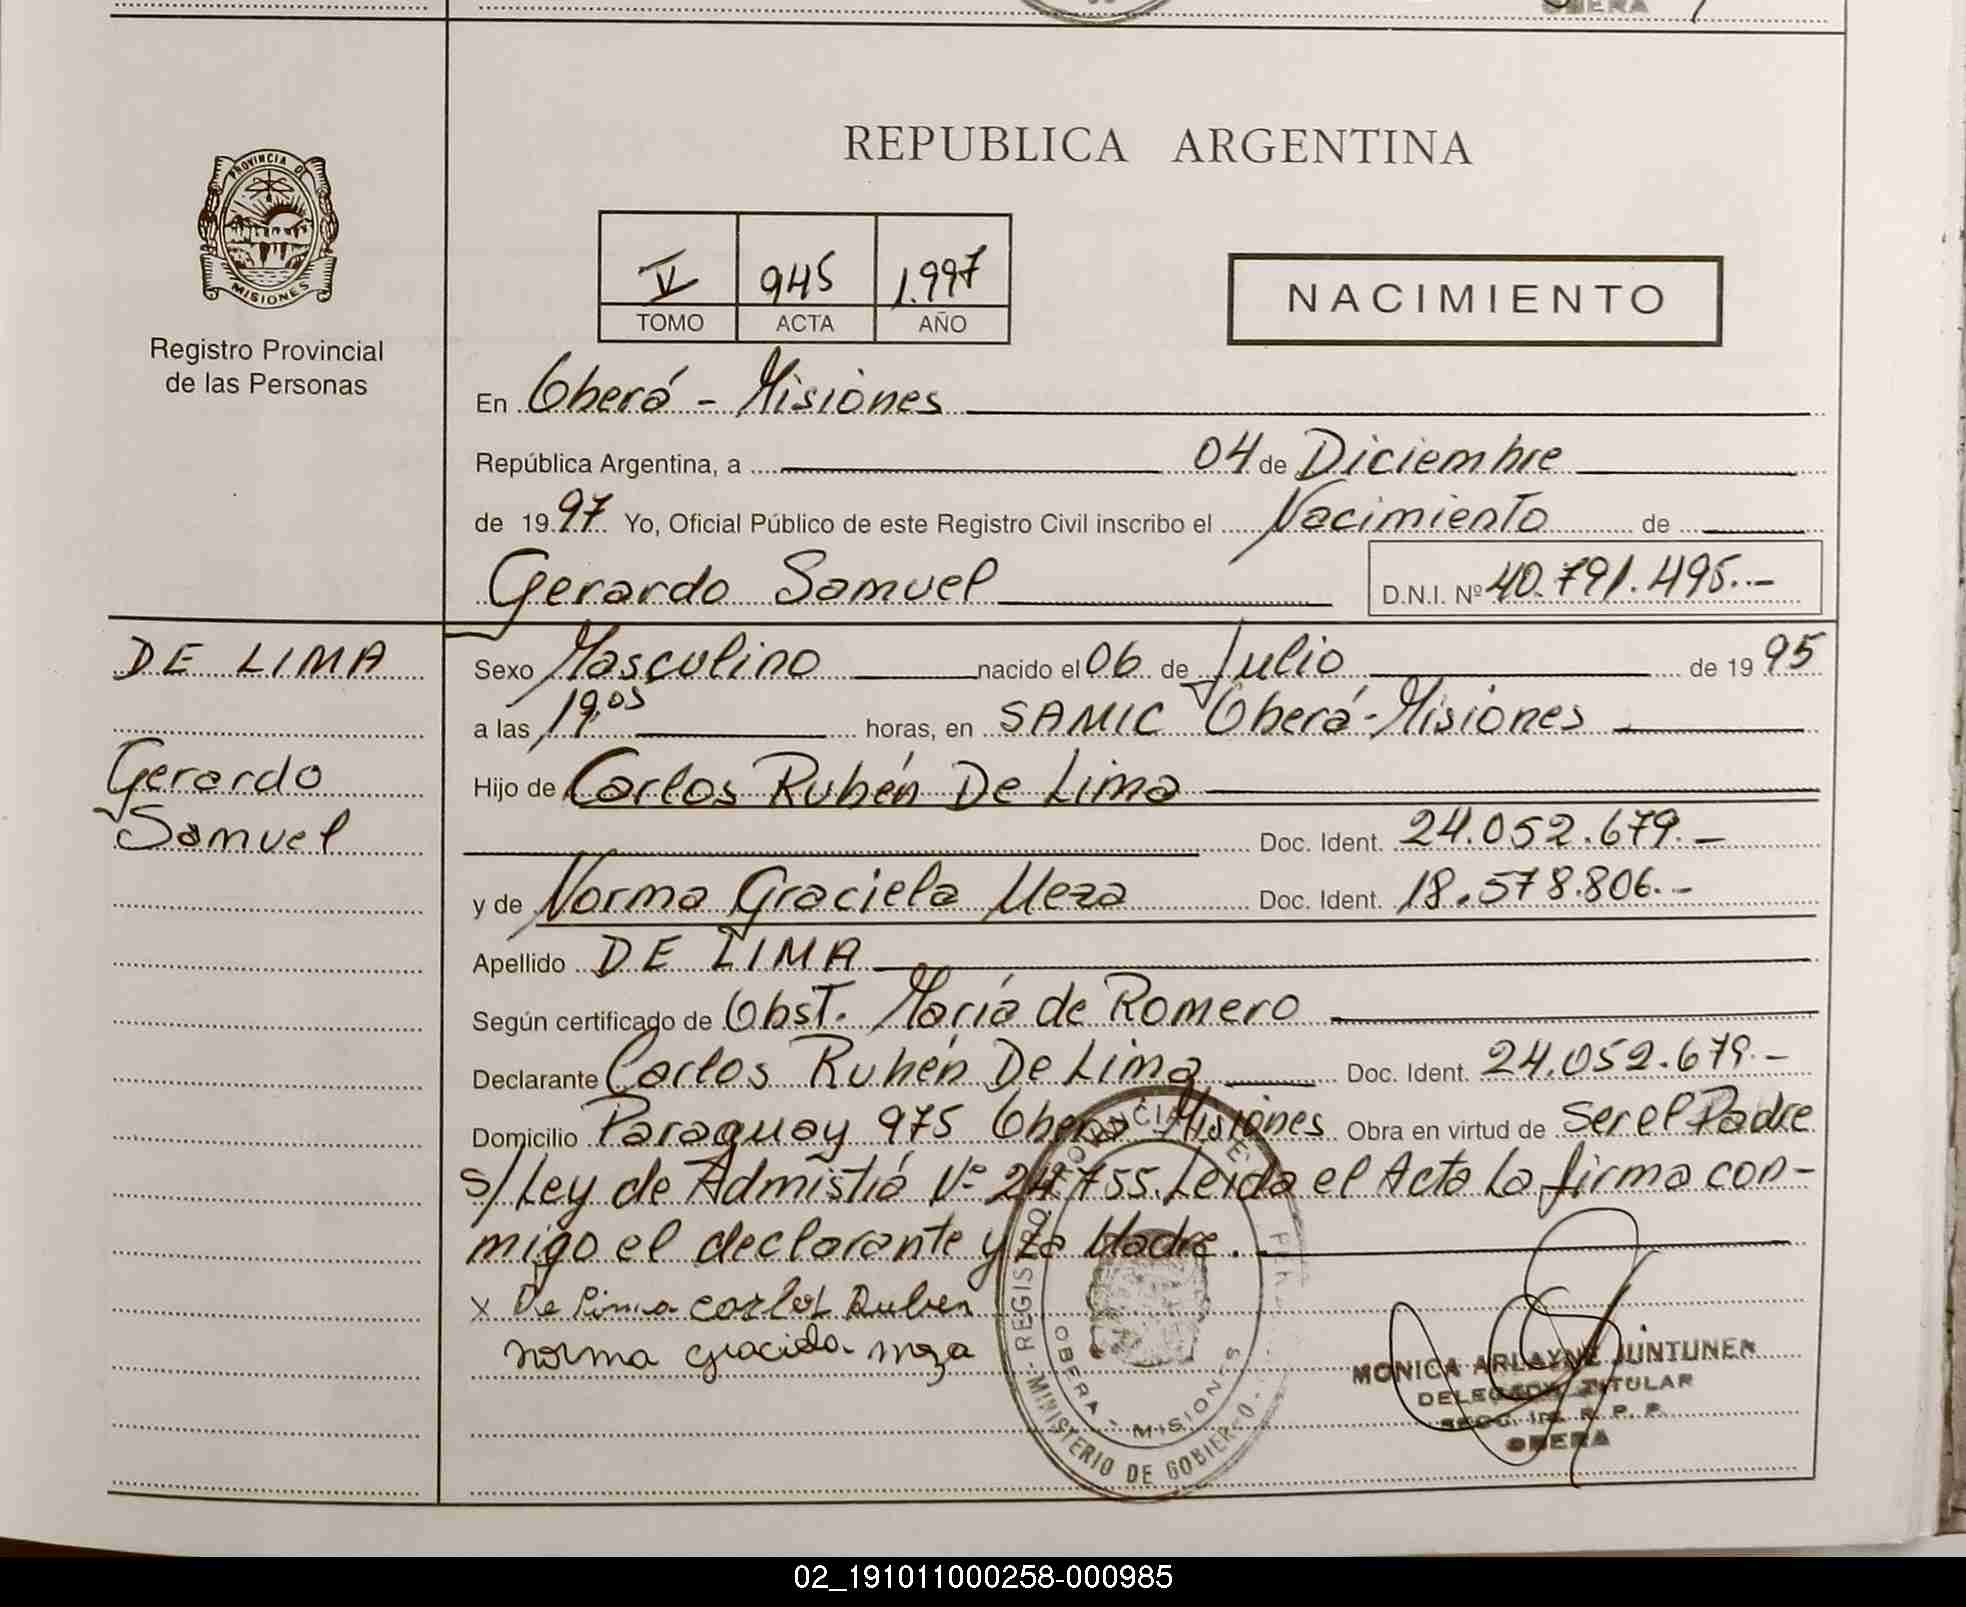 REPUBLICA ARGENTINA
PROVINCIA DE
MISIONES
Registro Provincial
de las Personas
V 945 1.997
TOMO ACTA AÑO
NACIMIENTO
En Oberá - Misiones
República Argentina, a 04 de Diciembre
de 1997 Yo, Oficial Público de este Registro Civil inscribo el Nacimiento de
Gerardo Samuel D.N.I. Nº 40.791.495.-
DE LIMA
Gerardo
Samuel
Sexo Masculino nacido el 06 de Julio de 1995
a las 19,05 horas, en SAMIC Oberá-Misiones
Hijo de Carlos Rubén De Lima
Doc. Ident. 24.052.679.-
y de Norma Graciela Meza Doc. Ident. 18.578.806.-
Apellido DE LIMA
Según certificado de Obst. María de Romero
Declarante Carlos Rubén De Lima Doc. Ident. 24.052.679.-
Domicilio Paraguay 975 Oberá Misiones Obra en virtud de Ser el Padre
s/Ley de Admistiá Nº 24.755. Leida el Acta La firma con-
migo el declarante y La Madre.
x De Lima Carlos Ruben
norma graciela meza
OBERA - MISIONES
MINISTERIO DE GOBIERNO
MONICA ARLAYNE JUNTUNEN
DELEGADA TITULAR
R. P. P.
OBERA
02_191011000258-000985